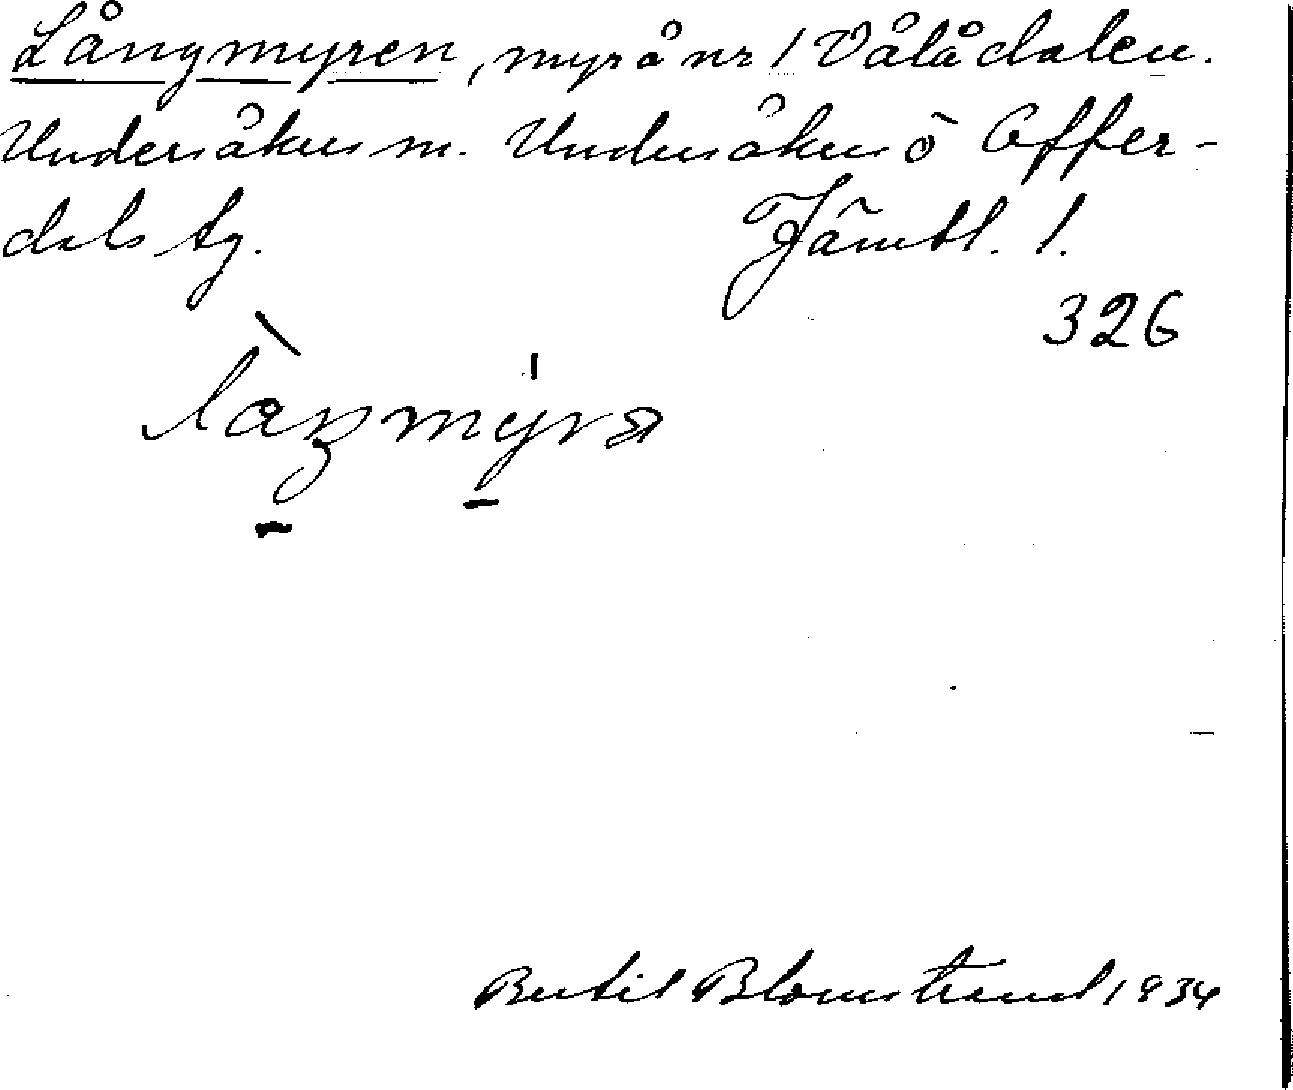 Långmyren, myr å nr 1 Vålådalen.
Undersåkers sn. Undersåkers o Offer-
dals tg. Jämtl. l.
326
Bertil Blomstrand 1934